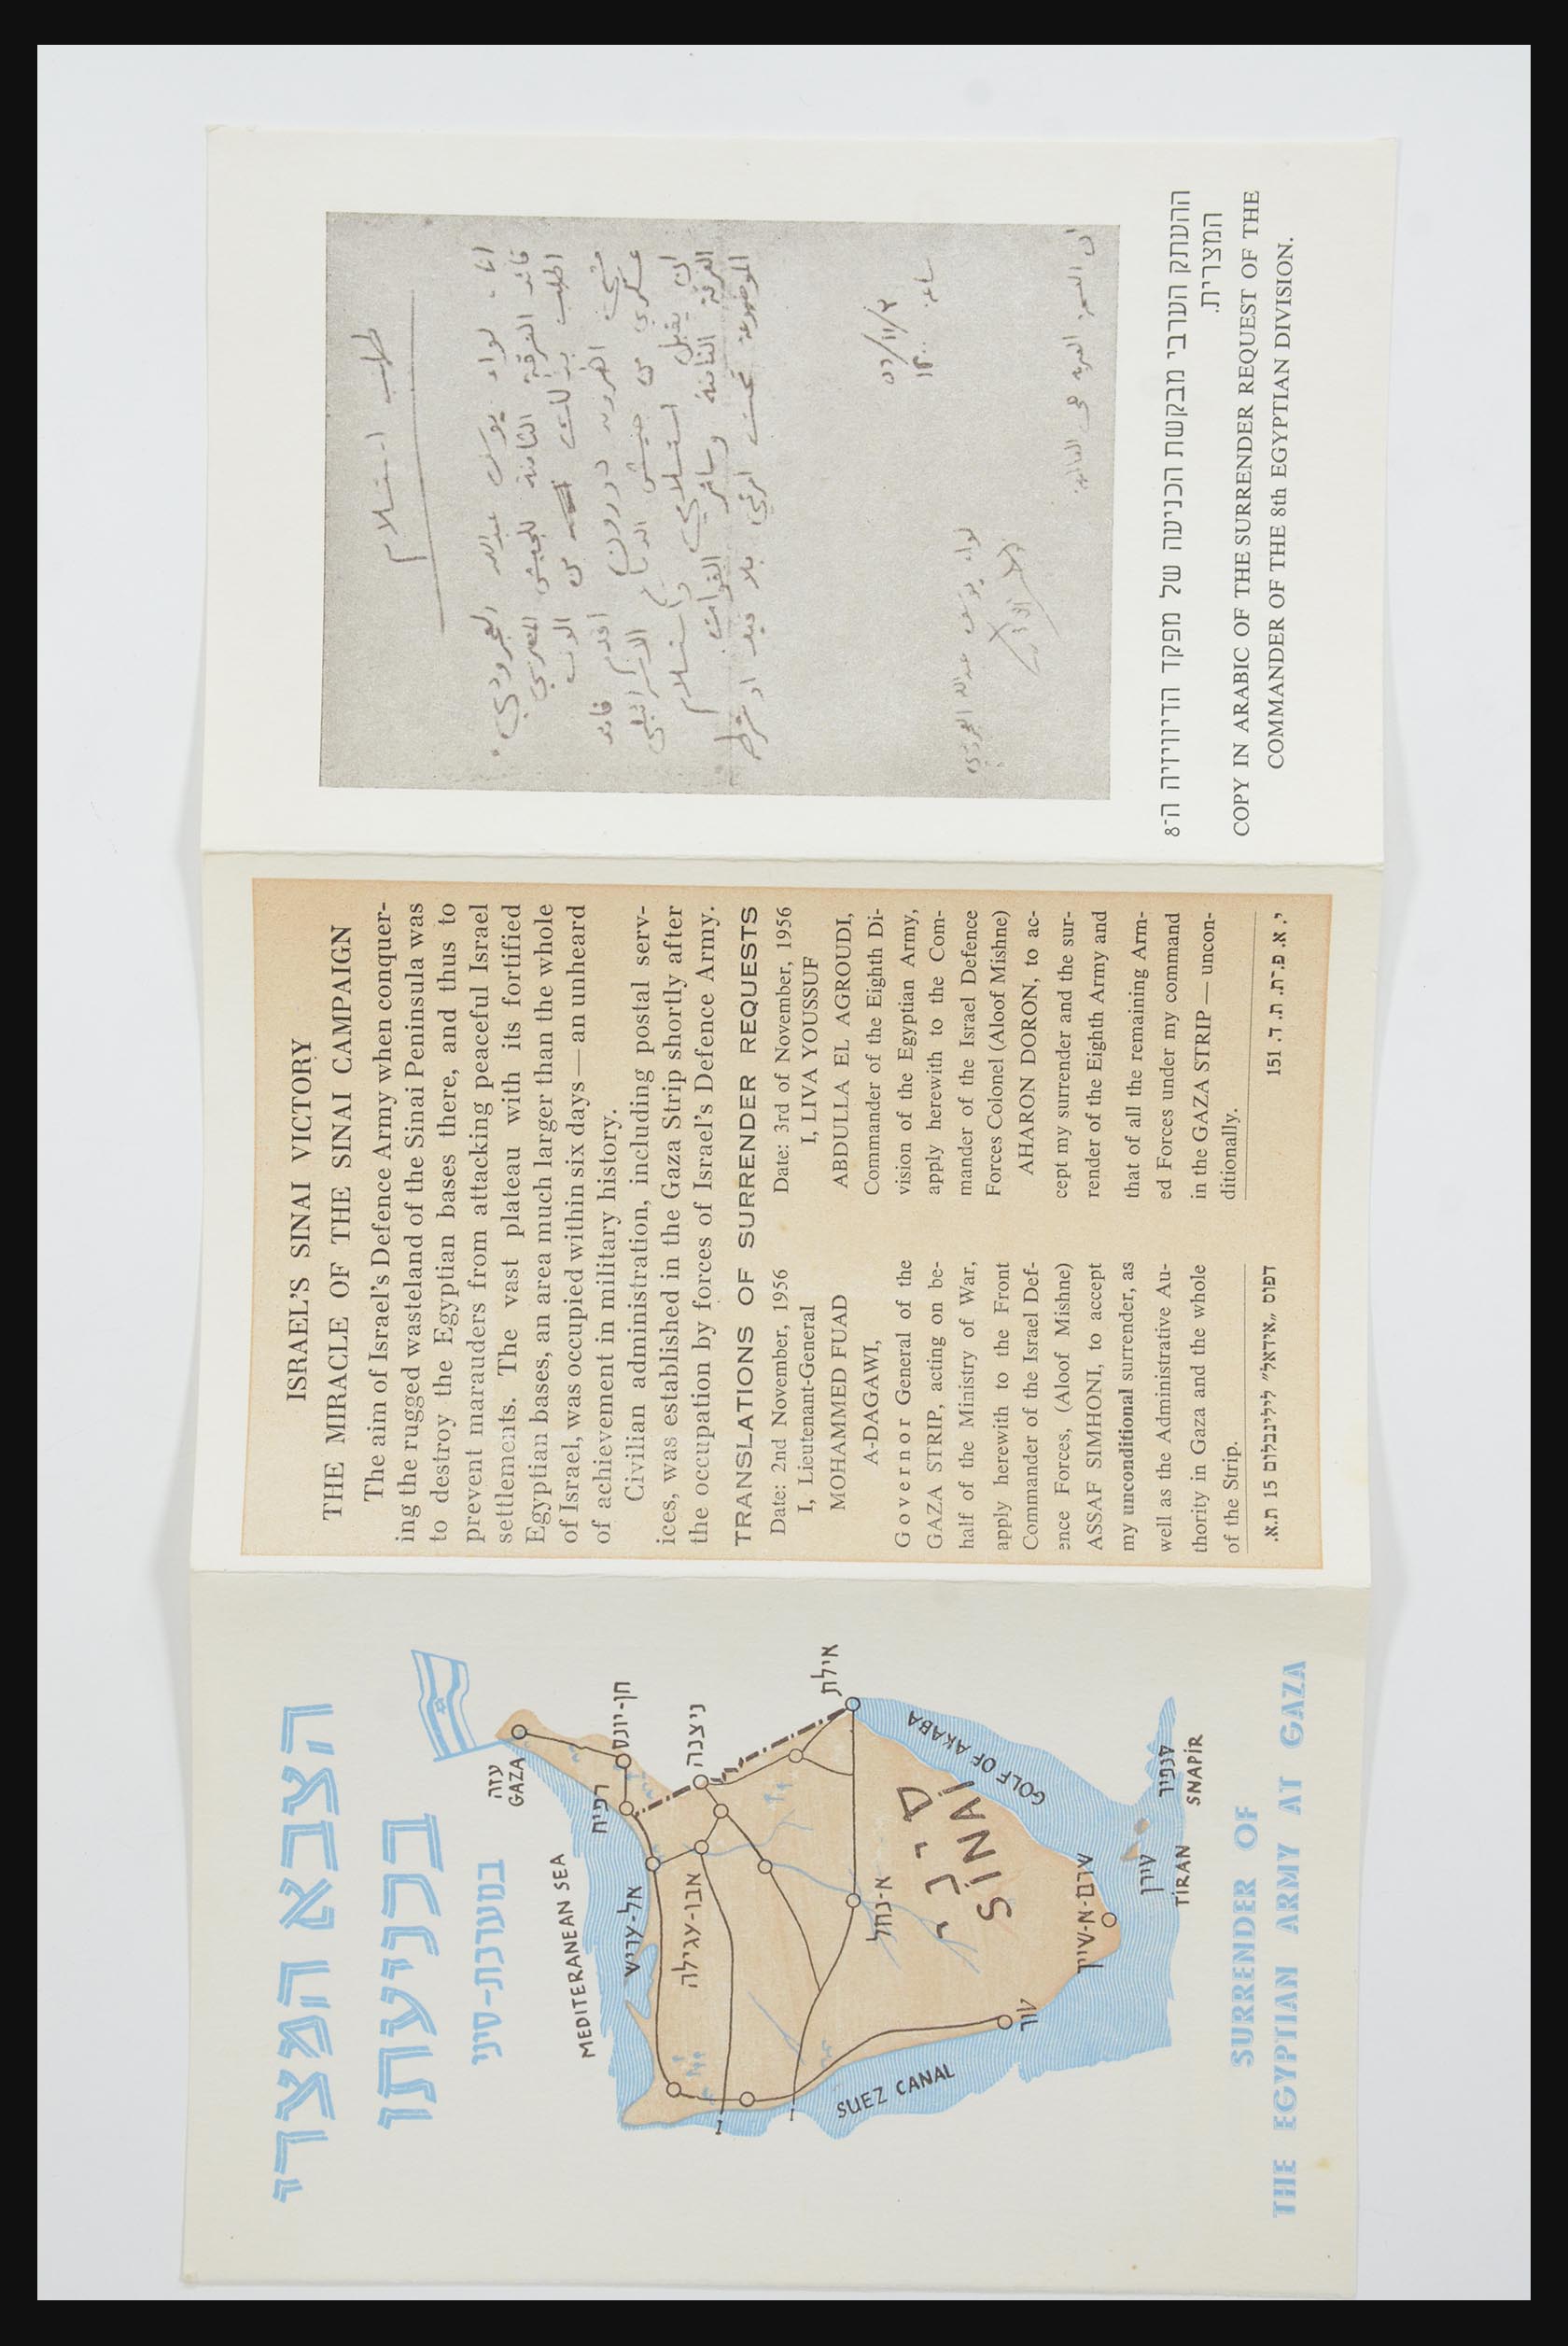 הצבא המצרי
בכניעתו
במערכת-סיני
עזה
GAZA
חן-יונס
רפיח
ניצנה
אילת
MEDITERANEAN SEA
אל-עריש
אבו-עגילה
א-נחל
סיני
SINAI
GOLF OF AKABA
SUEZ CANAL
טור
שרם-א-שייך
טירן
TIRAN
סנפיר
SNAPIR
SURRENDER OF
THE EGYPTIAN ARMY AT GAZA
ISRAEL'S SINAI VICTORY
THE MIRACLE OF THE SINAI CAMPAIGN
The aim of Israel's Defence Army when conquer-
ing the rugged wasteland of the Sinai Peninsula was
to destroy the Egyptian bases there, and thus to
prevent marauders from attacking peaceful Israel
settlements. The vast plateau with its fortified
Egyptian bases, an area much larger than the whole
of Israel, was occupied within six days — an unheard
of achievement in military history.
Civilian administration, including postal serv-
ices, was established in the Gaza Strip shortly after
the occupation by forces of Israel's Defence Army.
TRANSLATIONS OF SURRENDER REQUESTS
Date: 2nd November, 1956
I, Lieutenant-General
MOHAMMED FUAD
A-DAGAWI,
Governor General of the
GAZA STRIP, acting on be-
half of the Ministry of War,
apply herewith to the Front
Commander of the Israel Def-
ence Forces, (Aloof Mishne)
ASSAF SIMHONI, to accept
my unconditional surrender, as
well as the Administrative Au-
thority in Gaza and the whole
of the Strip.
דפוס „אידאל" לילינבלום 15 ת.א.
Date: 3rd of November, 1956
I, LIVA YOUSSUF
ABDULLA EL AGROUDI,
Commander of the Eighth Di-
vision of the Egyptian Army,
apply herewith to the Com-
mander of the Israel Defence
Forces Colonel (Aloof Mishne)
AHARON DORON, to ac-
cept my surrender and the sur-
render of the Eighth Army and
that of all the remaining Arm-
ed Forces under my command
in the GAZA STRIP — uncon-
ditionally.
י. א. פ.רת. ת. ד. 151
طلب استسلام
انا، لواء يوسف عبدالله العجرودي
قائد الفرقة الثامنة للجيش المصري
اطلب بذلك من
اهرون دورون قائد
عسكري من جيش الدفاع الاسرائيلي
ان يقبل استسلامي واستسلام
الفرقة الثامنة وسائر القوات
الموضوعة تحت امرتي بلا قيد او شرط
٥٦/١١/٣
لواء يوسف عبدالله العجرودي
ההעתק הערבי מבקשת הכניעה של מפקד הדיוויזיה ה-8
המצרית.
COPY IN ARABIC OF THE SURRENDER REQUEST OF THE
COMMANDER OF THE 8th EGYPTIAN DIVISION.